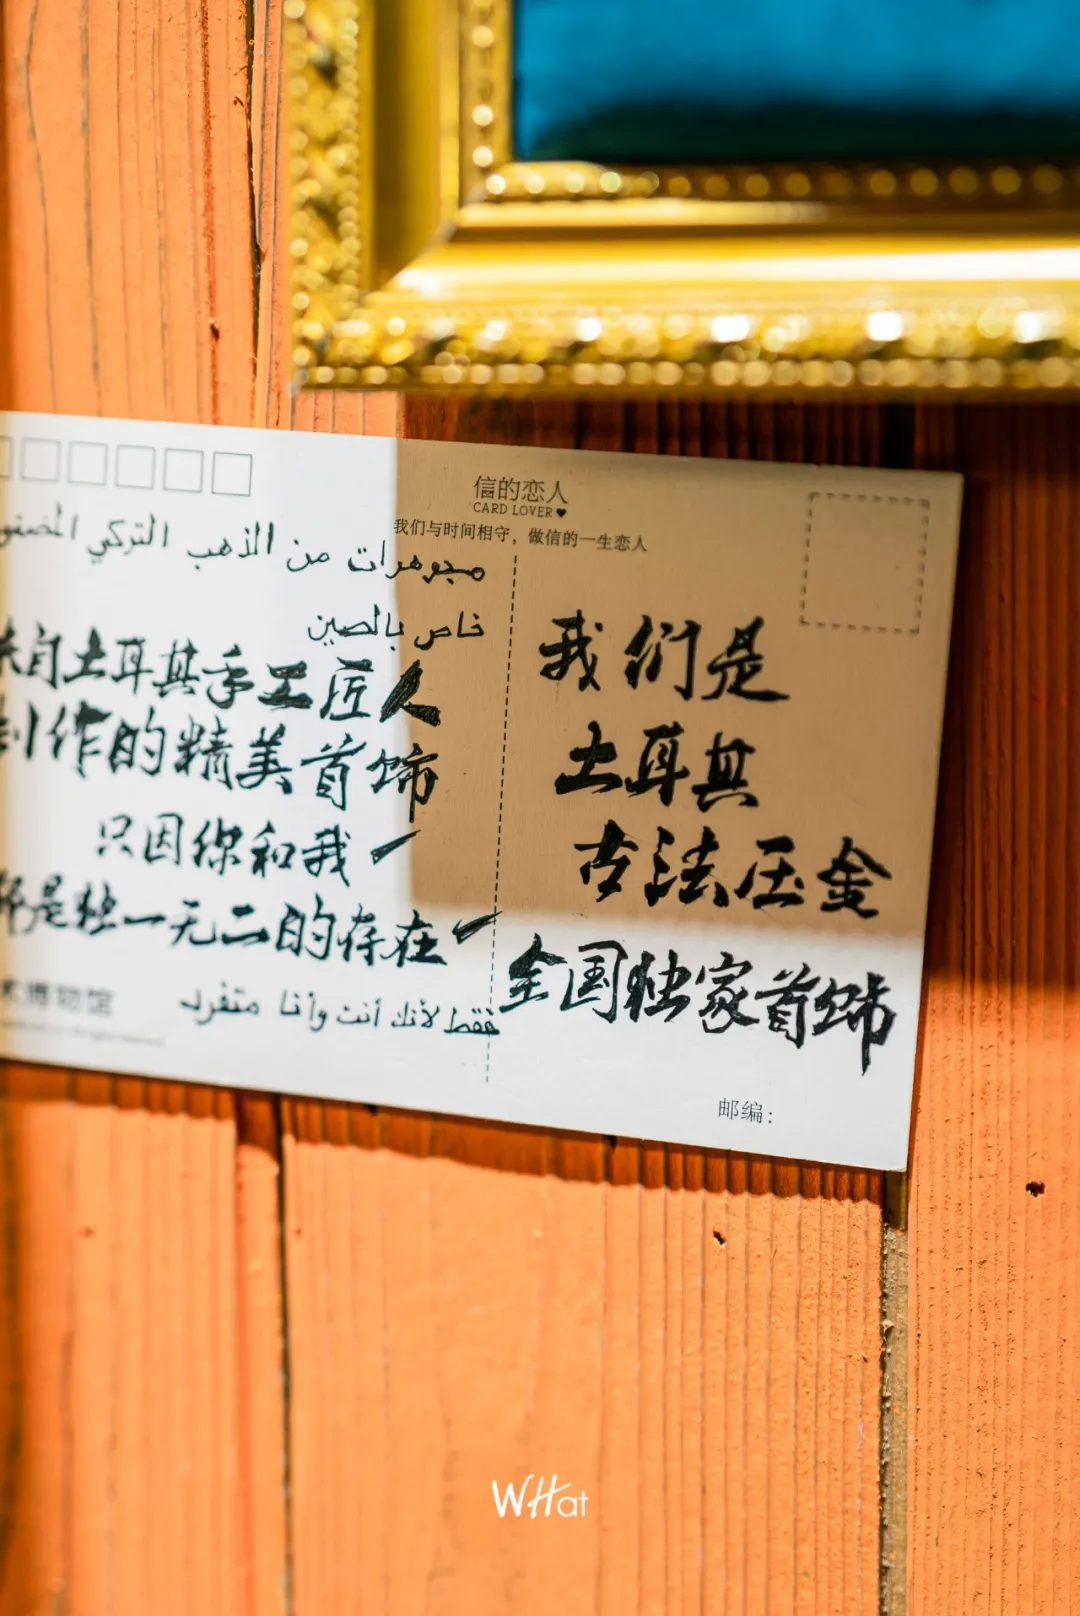 信的恋人
CARD LOVER
我们与时间相守，做信的一生恋人
مجوهرات من الذهب التركي
خاص بالصين
自土耳其手工匠人
制作的精美首饰
只因你和我
都是独一无二的存在
فقط لأنك أنت وأنا متفرد
博物馆
我们是
土耳其
古法压金
全国独家首饰
邮编：
WHat